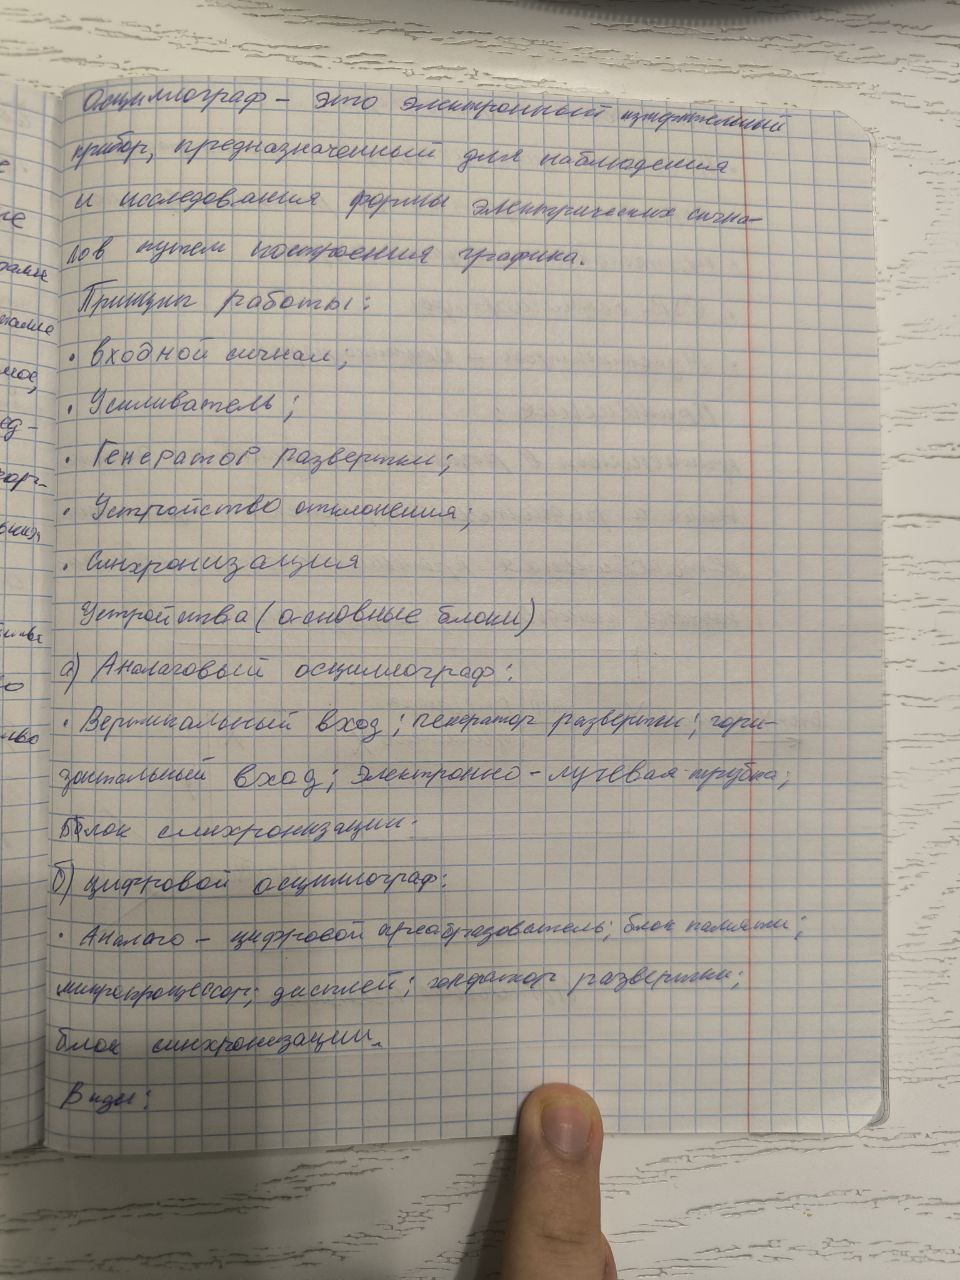 Осциллограф – это электронный измерительный
прибор, предназначенный для наблюдения
и исследования формы электрических сигна-
лов путем построения графика.
Принцип работы:
• входной сигнал;
• Усиливатель;
• Генератор развертки;
• Устройство отклонения;
• Синхронизация
Устройства (основные блоки)
а) Аналаговый осциллограф:
• Вертикальный вход; генератор развертки; гори-
зонтальный вход; электронно-лучевая трубка;
блок синхронизации.
б) цифровой осциллограф:
• Аналого – цифровой преобразователь; блок памяти;
микропроцессор; дисплей; генератор развертки;
блок синхронизации.
Виды: